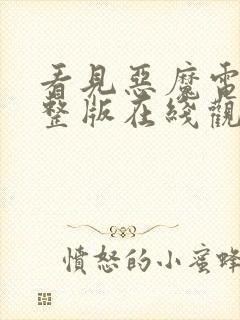 看見惡魔電
整版在綫觀
憤怒的小蜜蜂